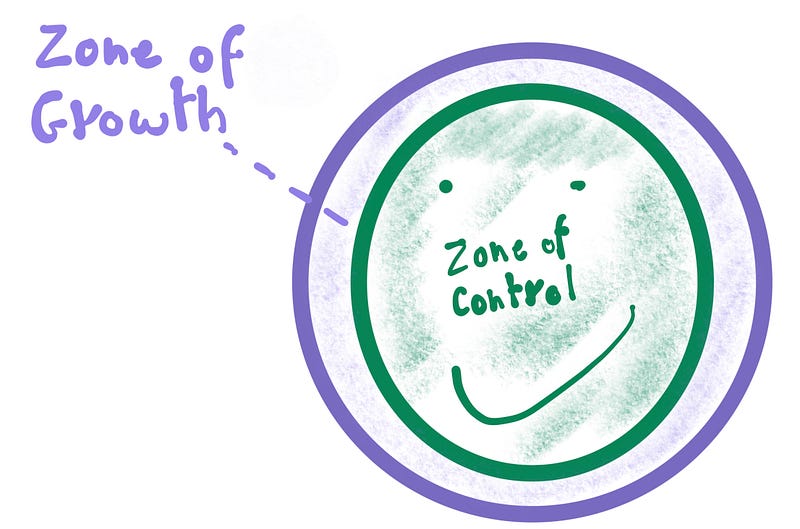 Zone of
Growth
Zone of
Control